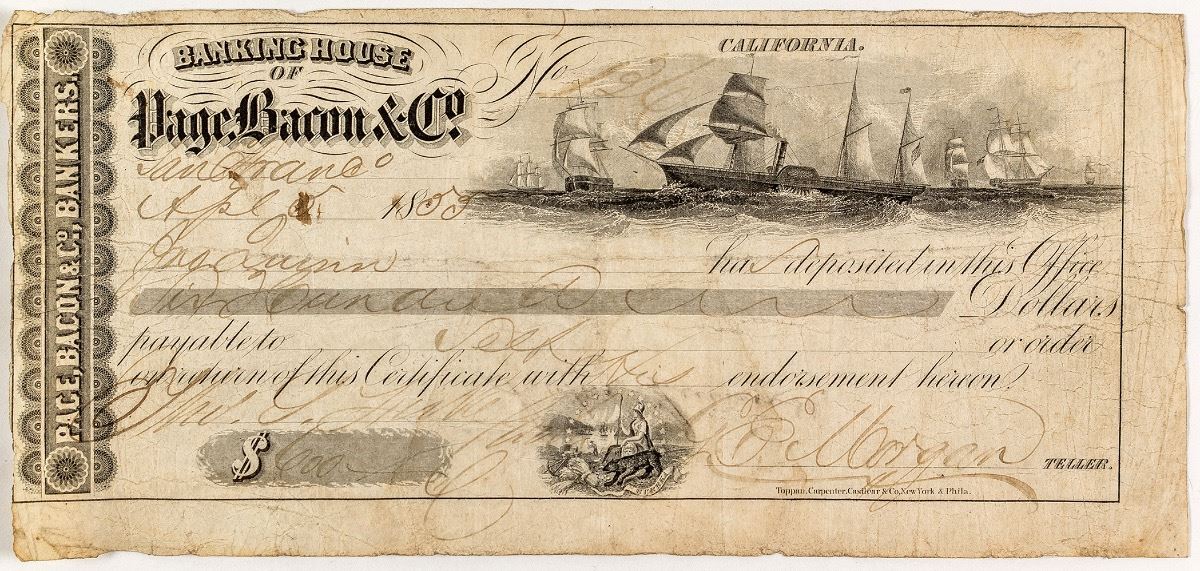 PAGE, BACON & Co., BANKERS.
BANKING HOUSE
OF
Page, Bacon & Co.
CALIFORNIA.
No
San Franco
Apl 5 1853
has deposited in this Office
Six hundred Dollars
payable to Self or order
on return of this Certificate with his endorsement hereon.
$ 600
Morgan TELLER.
Toppan, Carpenter, Casilear & Co, New York & Phila.